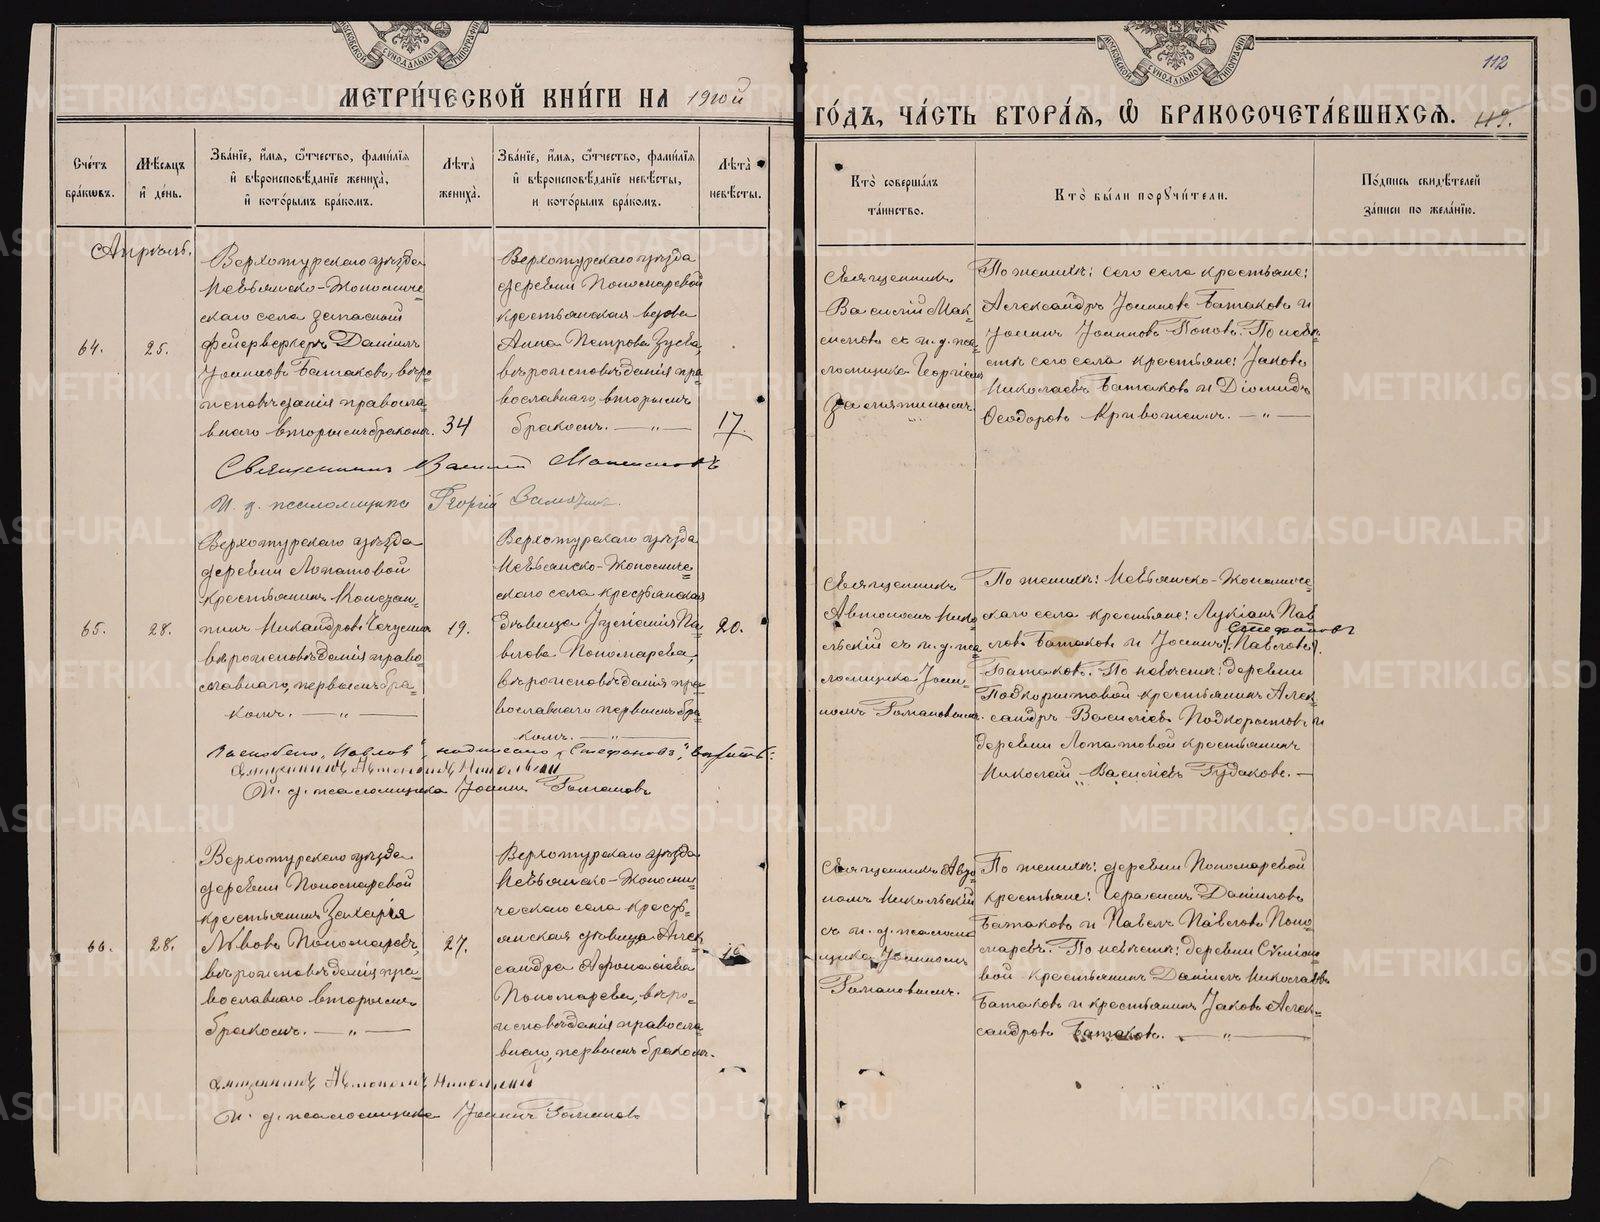 МЕТРИ́ЧЕСКОЙ КНИ́ГИ НА 1920й
ГО́ДЪ, ЧА́СТЬ ВТОРА́Я, Ѿ БРАКОСОЧЕТА́ВШИХСЯ.
112
Сче́тъ бра́кωвъ.
Мѣ́сяцъ и де́нь.
Зва́нїе, и́мя, ѻ́тчество, фами́лїя
и вѣроисповѣ́данїе жениха̀,
и кото́рымъ бра́комъ.
Лѣ́та жениха̀.
Зва́нїе, и́мя, ѻ́тчество, фами́лїя
и вѣроисповѣ́данїе невѣ́сты,
и кото́рымъ бра́комъ.
Лѣ́та невѣ́сты.
Кто̀ соверша́лъ
та́инство.
Кто̀ бы́ли порꙋчи́тели.
По́дпись свидѣ́телей
за́писи по жела́нїю.
Апрѣль.
64.
25.
Верхотурскаго уѣзда
Невьянско-Жономиче-
скаго села запасной
фейерверкеръ Данiилъ
Iоанновъ Батаковъ, вѣро-
исповѣданiя правосла-
внаго вторымъ бракомъ.
34
Верхотурскаго уѣзда
деревни Пономаревой
крестьянская вдова
Анна Петрова Зуева,
вѣроисповѣданiя пра-
вославнаго, вторымъ
бракомъ. — „ —
17.
Священникъ
Василiй Мак-
симовъ съ и. д. пса-
ломщика Георгiемъ
Замятинымъ.
По женихѣ: сего села крестьяне:
Александръ Iоанновъ Батаковъ и
Iоаннъ Iоанновъ Поповъ. По невѣ-
стѣ сего села крестьяне: Iаковъ
Николаевъ Батаковъ и Дiомидъ
Ѳеодоровъ Кривоженъ. — „ —
Священникъ Василiй Максимовъ
И. д. псаломщика Георгiй Замятинъ.
65.
28.
Верхотурскаго уѣзда
деревни Лопатовой
крестьянинъ Констан-
тинъ Никандровъ Чечулинъ
вѣроисповѣданiя право-
славнаго, первымъ бра-
комъ. — „ —
19.
Верхотурскаго уѣзда
Невьянско-Жономиче-
скаго села крестьянская
дѣвица Iулiанiя Па-
влова Пономарева,
вѣроисповѣданiя пра-
вославнаго первымъ бра-
комъ. — „ —
20.
Священникъ
Автономъ Нико-
льскiй съ и. д. пса-
ломщика Iоан-
номъ Романовымъ.
По женихѣ: Невьянско-Жономиче-
скаго села крестьяне: Лукiанъ Пав-
Стефановъ
ловъ Батаковъ и Iоаннъ (Павловъ).
Батаковъ. По невѣстѣ: деревни
Подкорытовой крестьянинъ Алек-
сандръ Василiевъ Подкорытовъ и
деревни Лопатовой крестьянинъ
Николай Василiевъ Гудаковъ. —
Заскоблено „Павловъ“, надписано „Стефановъ“, вѣрить:
Священникъ Автономъ Никольскiй
И. д. псаломщика Iоаннъ Романовъ
66.
28.
Верхотурскаго уѣзда
деревни Пономаревой
крестьянинъ Захарiя
Львовъ Пономаревъ,
вѣроисповѣданiя пра-
вославнаго вторымъ
бракомъ. — „ —
27.
Верхотурскаго уѣзда
Невьянско-Жономи-
ческаго села кресть-
янская дѣвица Алек-
сандра Аѳанасiева
Пономарева, вѣро-
исповѣданiя правосла-
внаго, первымъ бракомъ.
Священникъ Авто-
номъ Никольскiй
съ и. д. псалом-
щика Iоанномъ
Романовымъ.
По женихѣ: деревни Пономаревой
крестьяне: Герасимъ Данiиловъ
Батаковъ и Павелъ Павловъ Поно-
маревъ. По невѣстѣ: деревни
вой крестьянинъ Данiилъ Николаевъ
Батаковъ и крестьянинъ Iаковъ Алек-
сандровъ Батаковъ. — „ —
Священникъ Автономъ Никольскiй
И. д. псаломщика Iоаннъ Романовъ
METRIKI.GASO-URAL.RU